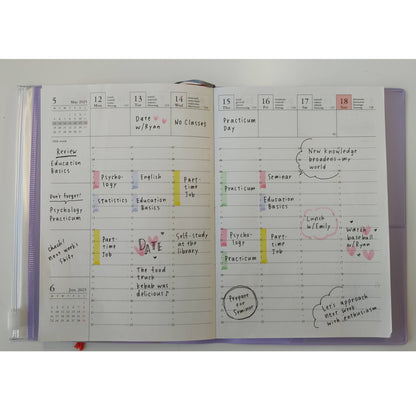 5
May 2025
12
Mon
13
Tue
14
Wed
Date
w/Ryan
No Classes
Review
Education
Basics
Don't forget!
Psychology
Practicum
Check!
next week's
Shift
Psycho-
logy
Statistics
Part-
time
Job
English
Education
Basics
DATE
The food
truck
kebab was
delicious♪
Part-
time
Job
Self-study
at the
library
6
Jun. 2025
15
Thu
16
Fri
17
Sat
18
Sun
Practicum
Day
Practicum
Psycho-
logy
Practicum
Prepare
for
Seminar
Seminar
Education
Basics
Part-
time
Job
New knowledge
broadens my
world
Lunch
w/Emily
Watch
baseball
w/Ryan
Let's approach
next week
with enthusiasm